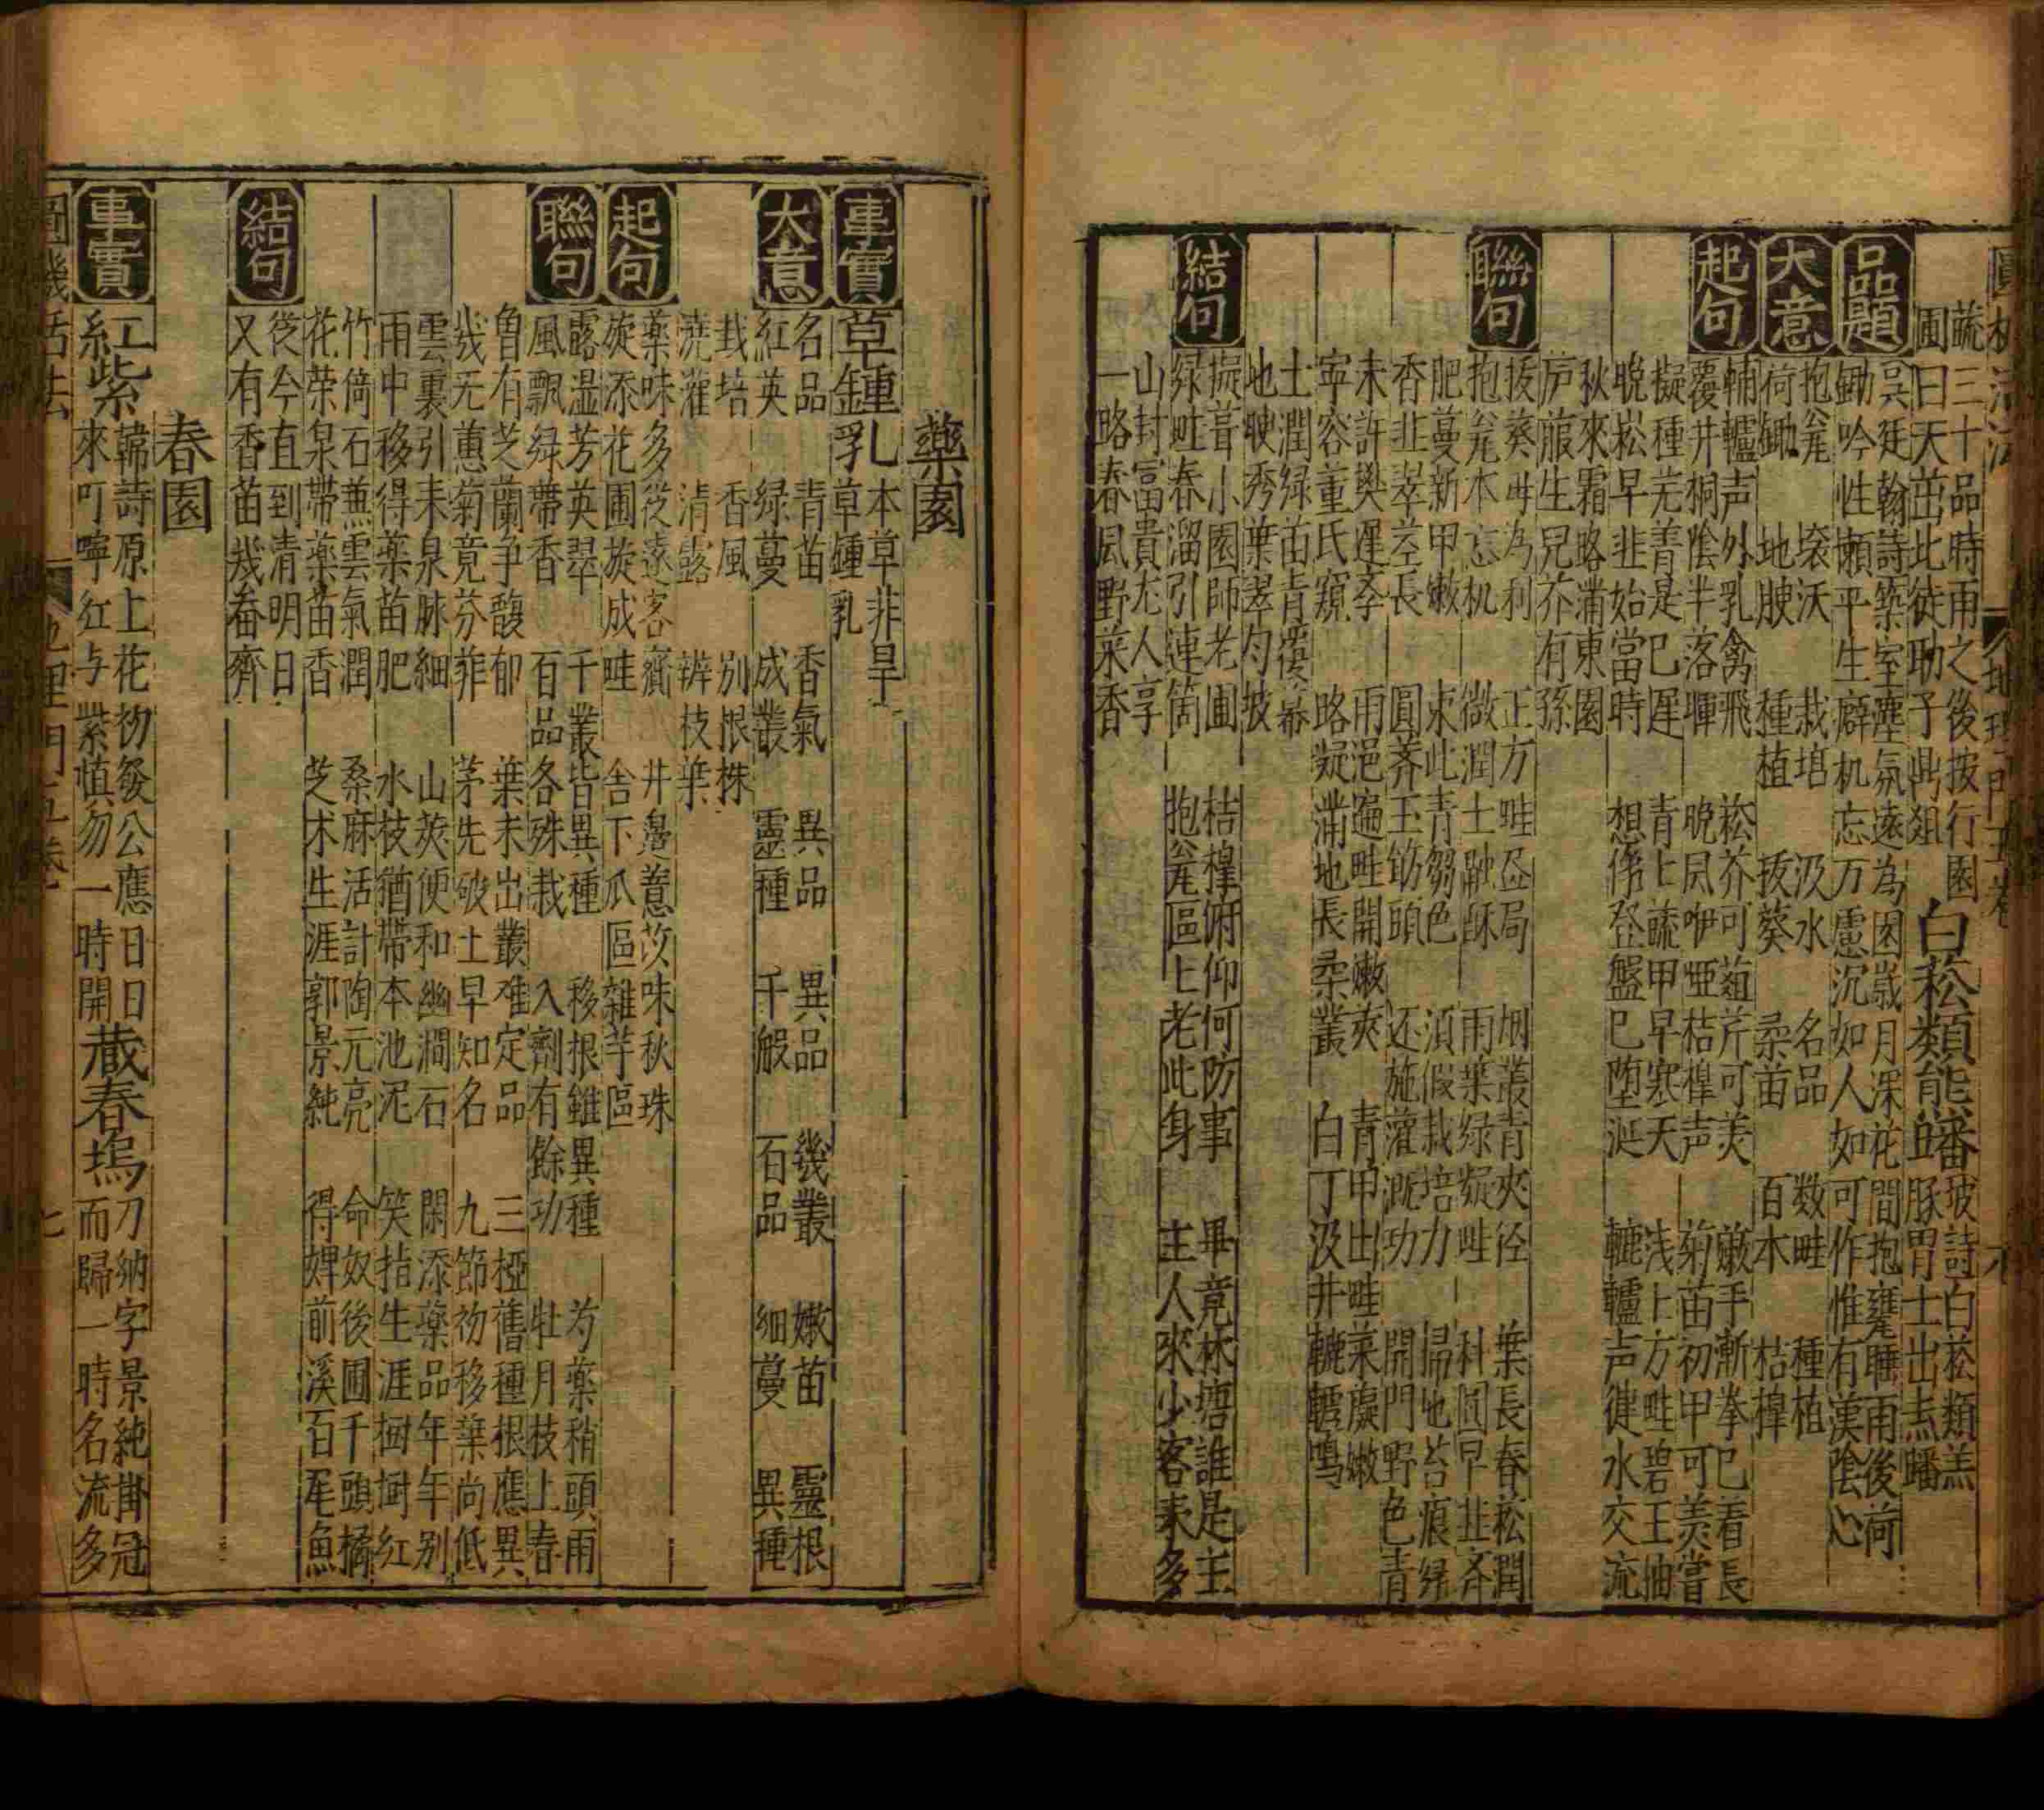 蔬三十品時雨之後按行園
圃曰天茁此徒助予鼎俎
白菘類能蟠
坡詩白菘類羔
豚胃士出𤣥蟠
品題
吴廷翰詩築室塵氛遠為园歲月深花間抱甕睡雨後荷
鋤吟性懶平生癖机忘万慮沉如人如可作惟有漢陰心
大意
抱瓮 壤沃 栽培 汲水 名品 数畦 種植
荷鋤 地腴 種植 拔葵 柔苗 百本 桔槔
起句
輔轤声外乳禽飛 菘芥可葅芹可羙 嫩手漸拳已看長
覆井桐陰半落暉 晚風咿啞桔槔声 菊苗初甲可羙嘗
擬種芜菁是已遲 青上蔬甲早寒天 浅上方畦碧玉抽
晚菘早韭始當時 想像登盤已堕涎 轆轤声健水交流
秋來霜略滿東園
芦菔生兒芥有孫
聯句
拔葵毋為利 正方畦叠局 烟叢青夾径 葉長春菘潤
抱瓮本忘机 微潤土融酥 雨葉绿凝畦 科圓早韭斉
肥蔓新甲嫩 束此青芻色 須假栽培力 帰地苔痕绿
香韭翠差長 圓薺玉筯頭 还施灌溉功 開門野色青
未許樊遲斈 雨浥遍畦開嫩夾 青甲出畦菜䕷嫩
寜容董氏窺 略凝滿地長柔叢 白丁汲井轆轤鳴
土潤绿苗青覆幕
地腴秀葉翠匀坡
結句
擬葺小園師老圃 桔槔俯仰何防事 畢竟林塘誰是主
绿畦春溜引連筒 抱瓮區上老此身 主人來少客来多
山封富貴尤人享
一略春風野菜香
藥園
事實
草鍾乳
本草韭是
草鍾乳
大意
名品 青苗 香氣 異品 異品 幾叢 嫩苗 靈根
紅英 绿蔓 成叢 靈種 千般 百品 细蔓 異種
栽培 香風 别恨株
澆灌 清露 辨枝葉
起句
藥味多従遠客齎 井邊薏苡味秋珠
旋添花圃旋成畦 舍下瓜區雜芋區
聯句
露湿芳英翠 千叢皆異種 移根雖異種 芍藥稍頭雨
風飄绿帶香 百品各殊栽 入劑有餘功 牡月枝上春
魯有芝蘭争馥郁 葉未出叢难定品 三椏舊種根應異
幾无蕙菊竟芬菲 茅先破土早知名 九節初移葉尚低
雲裏引来泉脉細 山羙便和幽澗石 閑添藥品年年别
雨中移得藥苗肥 水枝猶帶本池泥 笑指生涯樹樹紅
竹倚石蕪雲氣潤 桑麻活計陶元亮 命奴後圃千頭橘
花荣泉帶藥苗香 芝术生涯郭景純 得婢前溪百尾魚
結句
従今直到清明日
又有香苗幾畨齊
春園
事實
紅紫
韓詩原上花初發公應日日
來叮嚀紅与紫慎勿一時開
藏春塢
刀納字景純掛冠
而歸一時名流多
圓機活法
地理門五卷
七